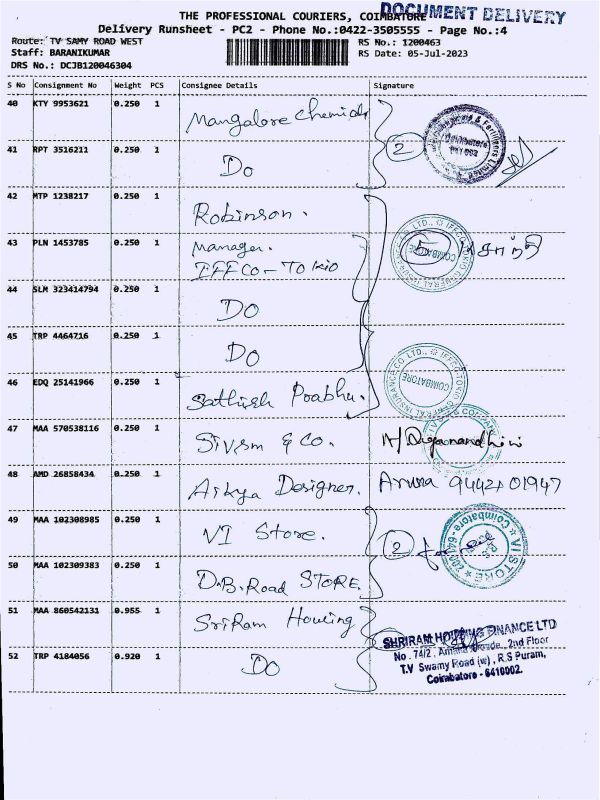 THE PROFESSIONAL COURIERS, COIMBATORE
DOCUMENT DELIVERY
Delivery Runsheet - PC2 - Phone No.:0422-3505555 - Page No.:4
Route: TV SAMY ROAD WEST
RS No.: 1200463
Staff: BARANIKUMAR
RS Date: 05-Jul-2023
DRS No.: DCJB120046304
S No Consignment No Weight PCS Consignee Details Signature
40 KTY 9953621 0.250 1 Mangalore Chemicals
41 RPT 3516211 0.250 1 Do
2
Fertilizers Limited
Coimbatore
42 MTP 1238217 0.250 1 Robinson.
43 PLN 1453785 0.250 1 Manager.
IFFCO-TOKIO
5
COIMBATORE
44 SLM 323414794 0.250 1 Do
45 TRP 4464716 0.250 1 Do
46 EDQ 25141966 0.250 1 Sathish Prabhu.
COIMBATORE
47 MAA 570538116 0.250 1 Sivsm & Co.
48 AMD 26858434 0.250 1 Arkya Designer. Aruna 94421 01947
49 MAA 102308985 0.250 1 VI Store.
2 for
VI STORE
Coimbatore - 641
50 MAA 102309383 0.250 1 D.B. Road STORE.
51 MAA 860542131 0.955 1 SriRam Housing
52 TRP 4184056 0.920 1 Do
SHRIRAM HOUSING FINANCE LTD
No. 74/2, 2nd Floor
T.V Swamy Road (w), R.S Puram,
Coimbatore - 6410002.